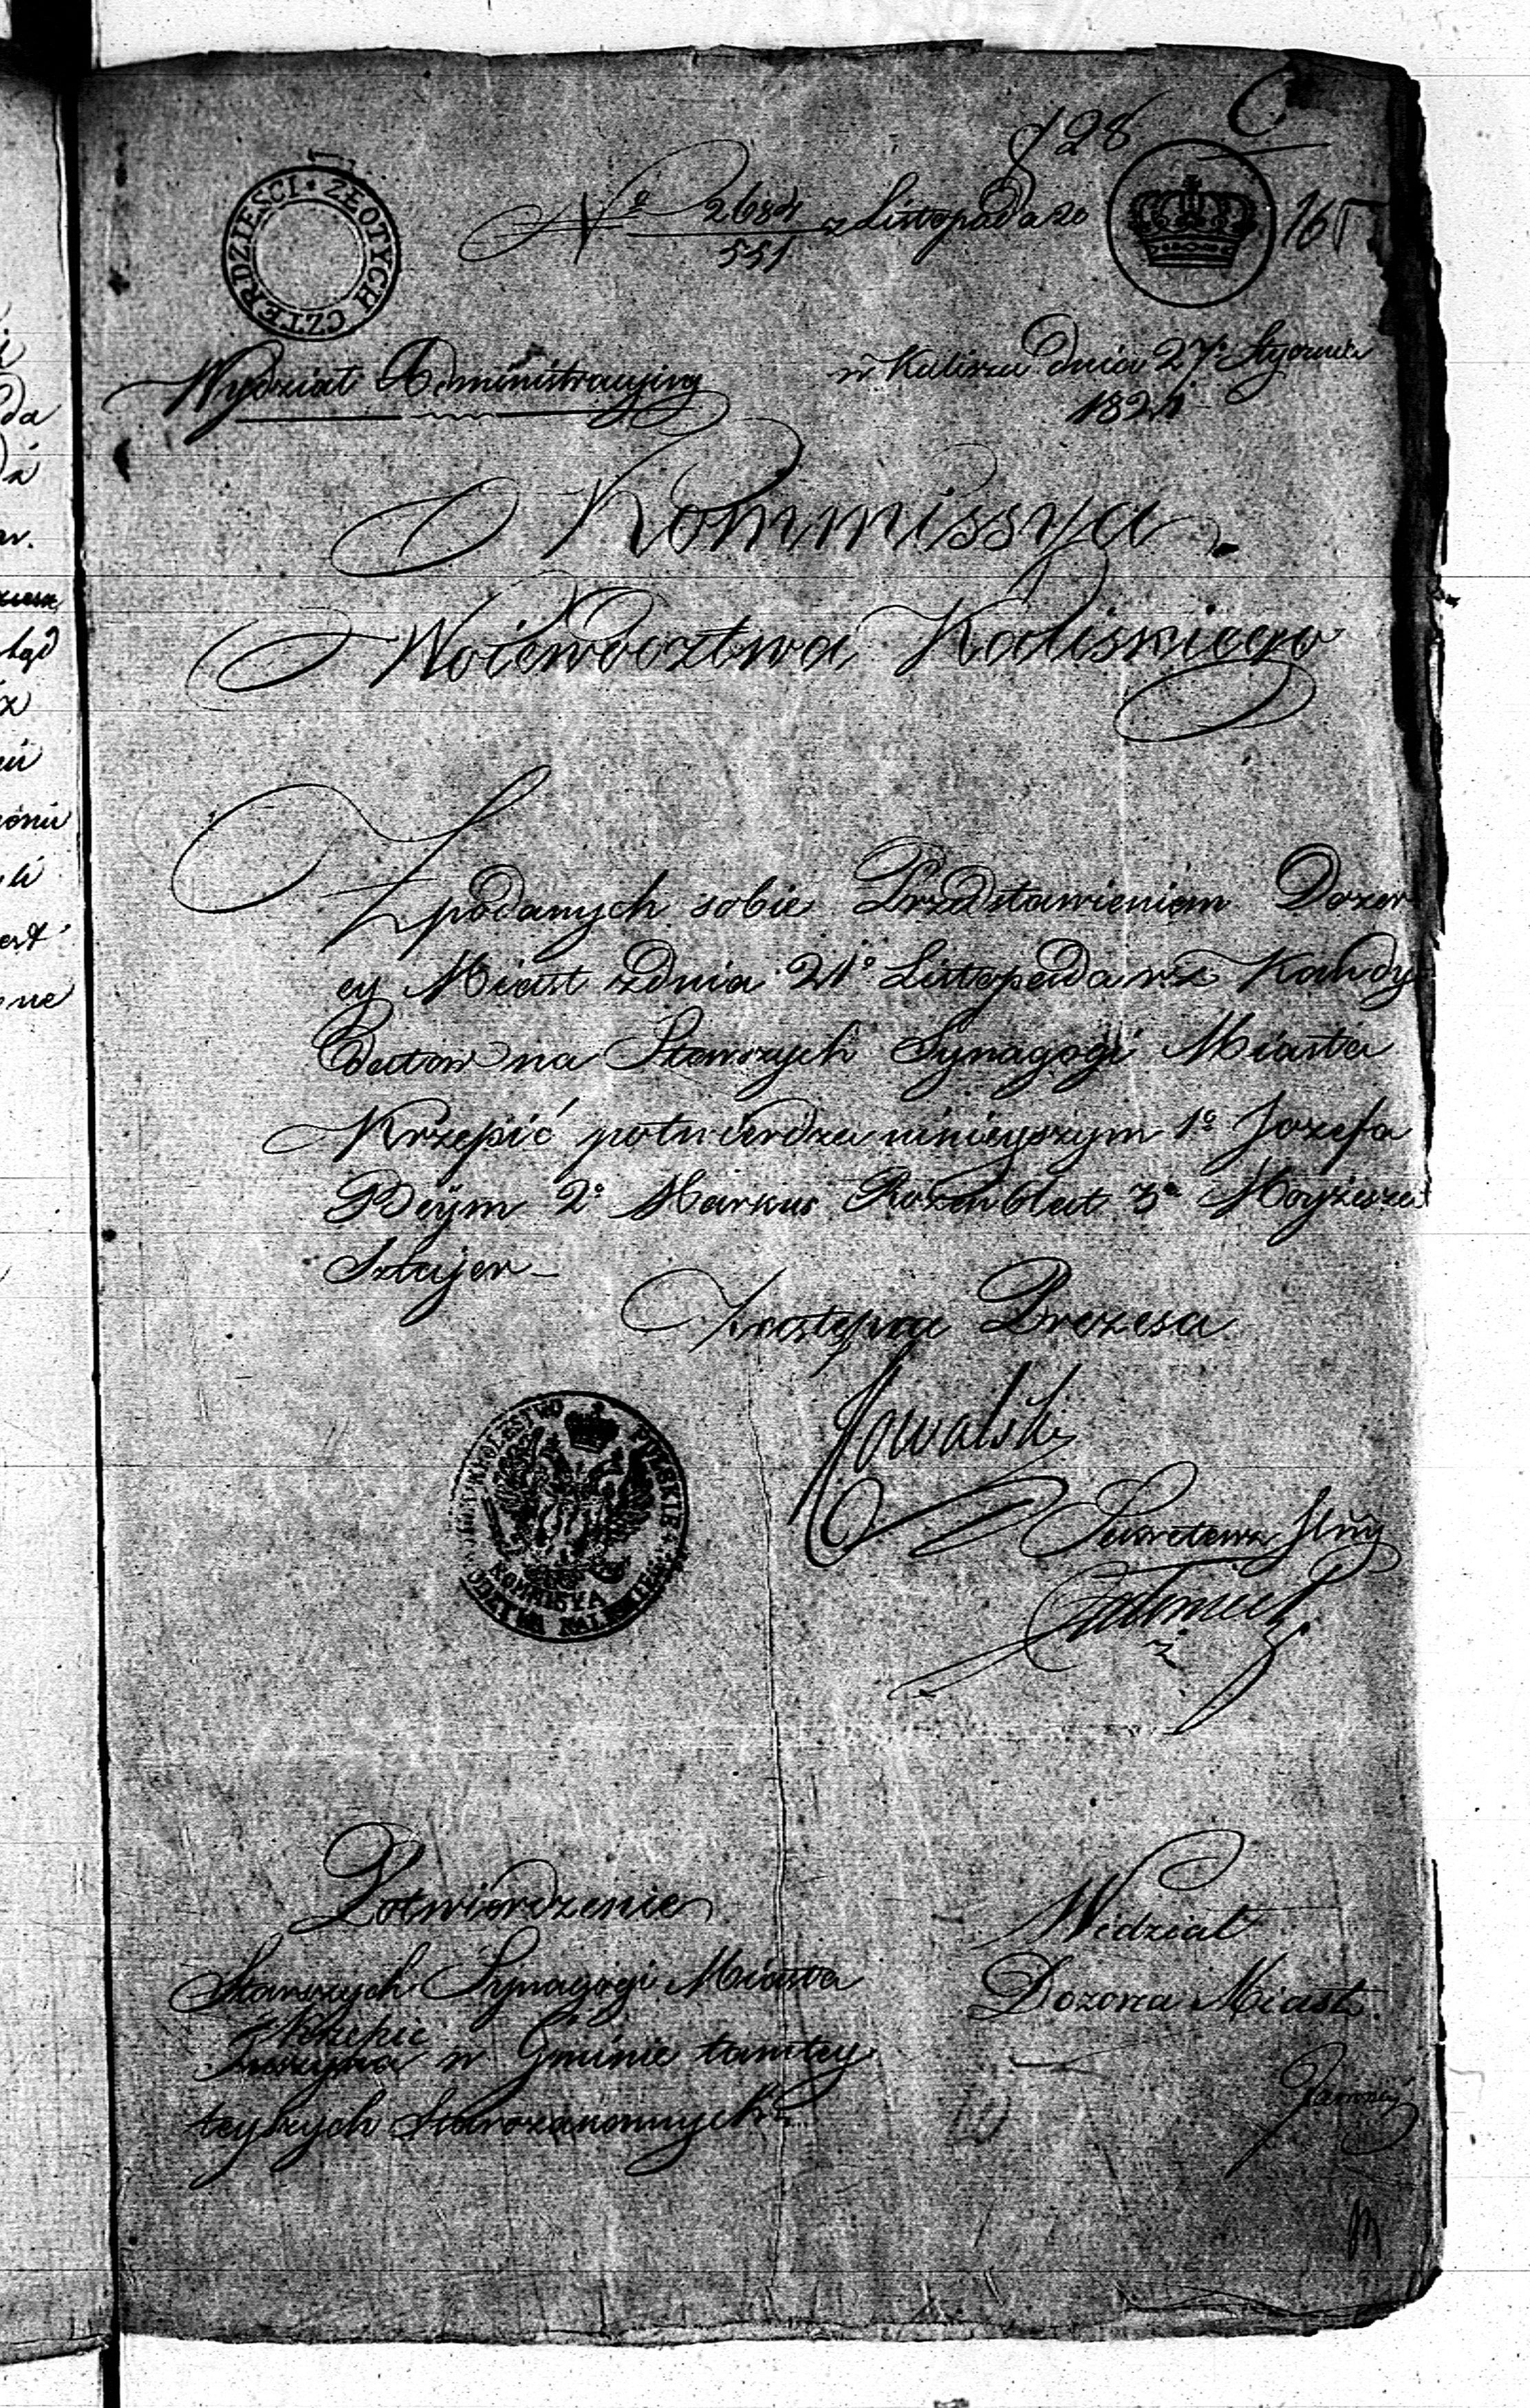 128
CZTERDZIEŚCI • ZŁOTYCH
No 2684 z Listopada 20
551
165
Wydział Administracyiny
w Kaliszu dnia 27 Stycznia
1821
Kommissya
Woiewodztwa Kaliskiego
Z podanych sobie Przedstawieniem Dozor
cy Miast z dnia 21o Listopada r. z. Kandy
datow na Starszych Synagogi Miasta
Krzepic potwierdza ninieyszym 1o Jozefa
Beÿm 2o Markus Rozenblat 3o Moyżesza
Sztajer
Zastępca Prezesa
Kowalski
Sekretarz Jlny
KROLESTWO POLSKIE
KOMMISYA
WOIEWODZTWA KALISKIEGO
Potwierdzenie
Starszych Synagogi Miasta
Krzepic
w Gminie tamtey
teyszych Starozakonnych
Widział
Dozorca Miast